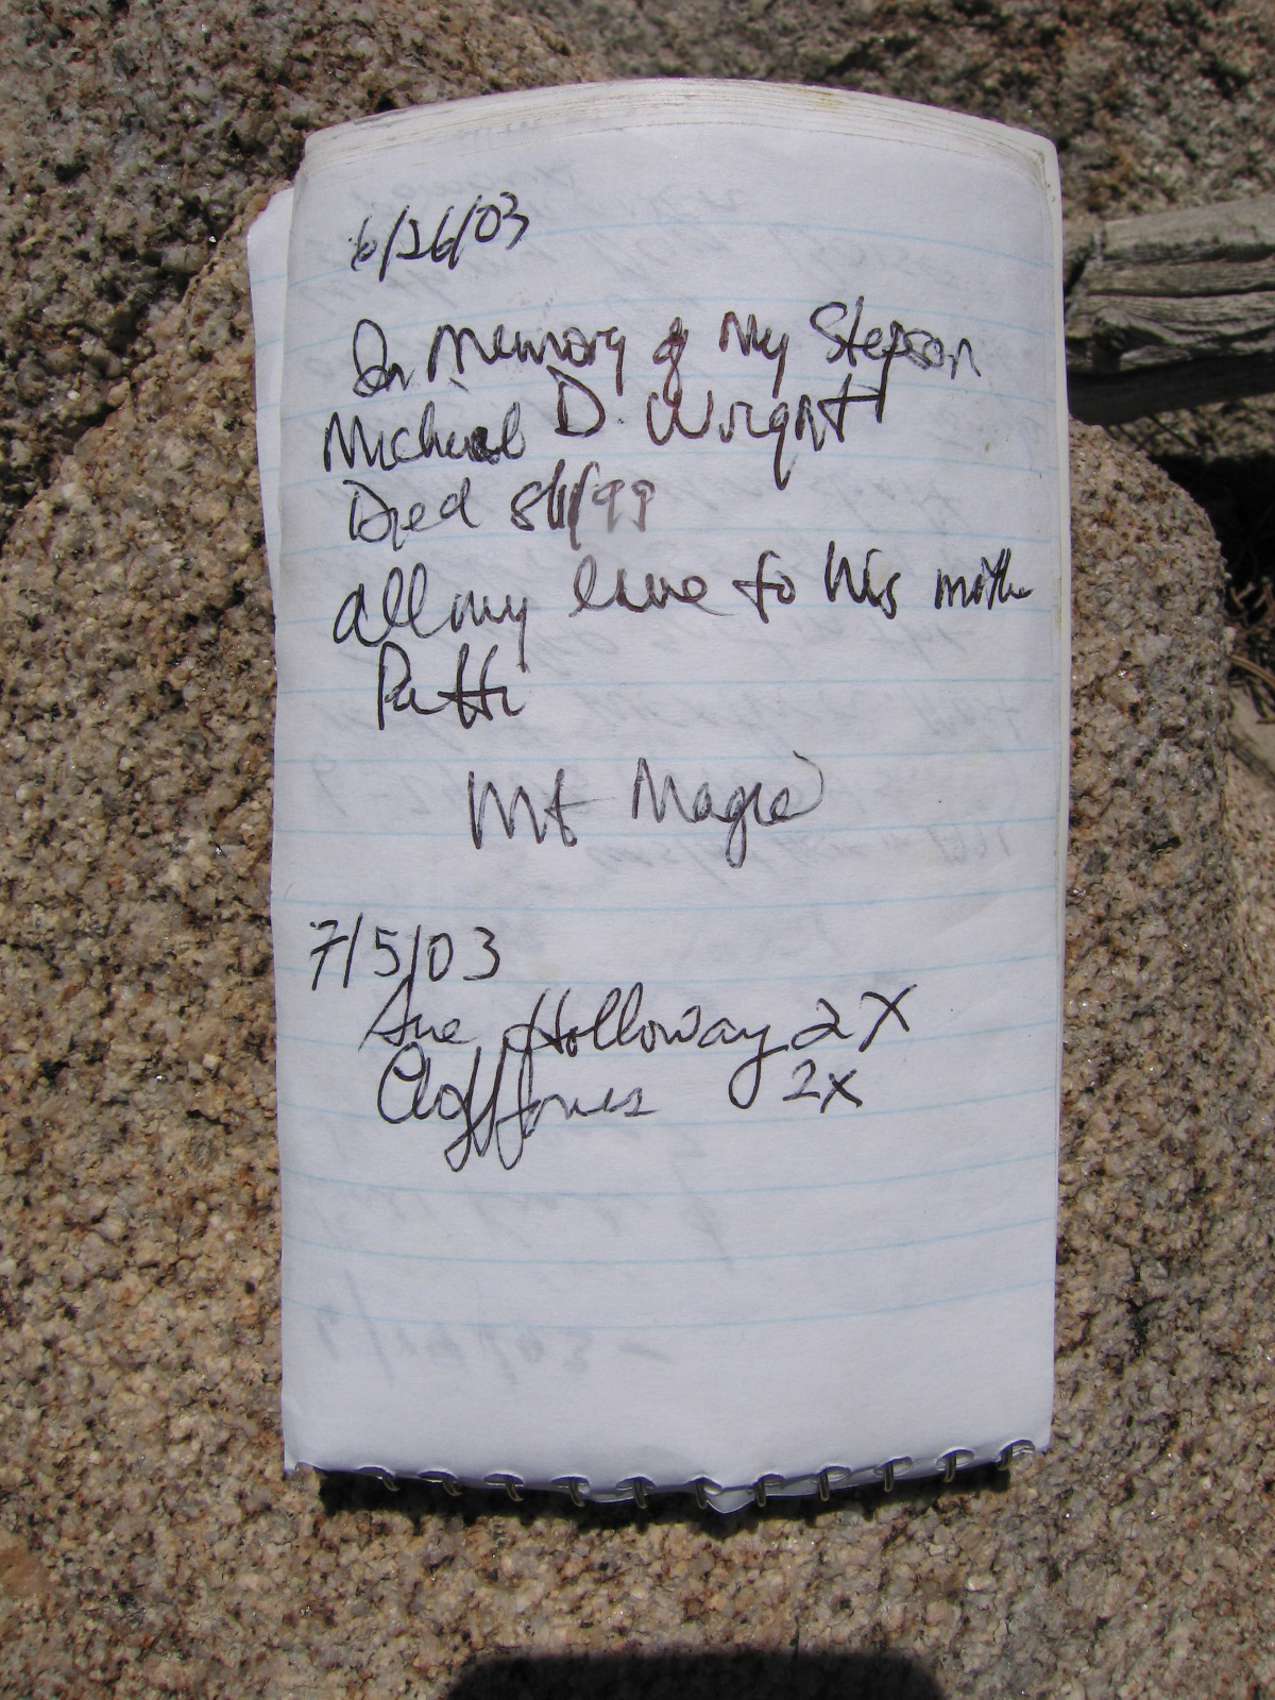 6/26/03
In Memory of My Stepson
Michael D. Wright
Died 8/1/99
all my love to his mother
Patti
Mt Magic
7/5/03
Sue Holloway 2X
Jones 2x